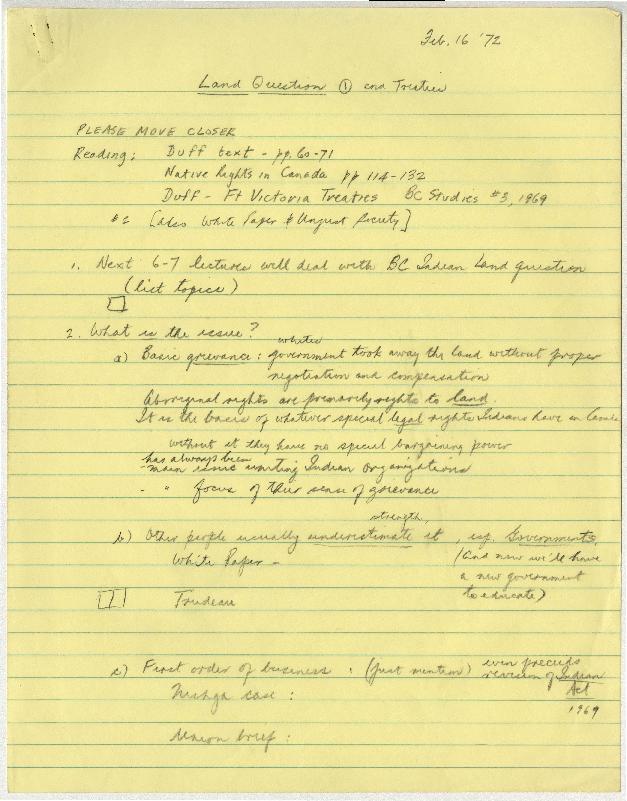 Feb. 16 '72
Land Question ① and Treaties
PLEASE MOVE CLOSER
Reading: Duff text - pp. 60-71
Native Rights in Canada pp 114-132
Duff - Ft Victoria Treaties BC Studies #3, 1969
[Also White Paper & Unjust Society]
1. Next 6-7 lectures will deal with BC Indian Land question
(list topics)
2. What is the issue?
whites
a) Basic grievance: government took away the land without proper
negotiation and compensation
Aboriginal rights are primarily rights to land.
It is the basis of whatever special legal rights Indians have in Canada
without it they have no special bargaining power
has always been
- main issue uniting Indian organizations
- " focus of their sense of grievance
strength,
b) Other people usually underestimate it, esp. Governments,
White Paper - (and now we'll have
a new government
Trudeau to educate)
c) First order of business: (just mention) even precedes
revision of Indian
Nishga case: Act
1969
Union brief: